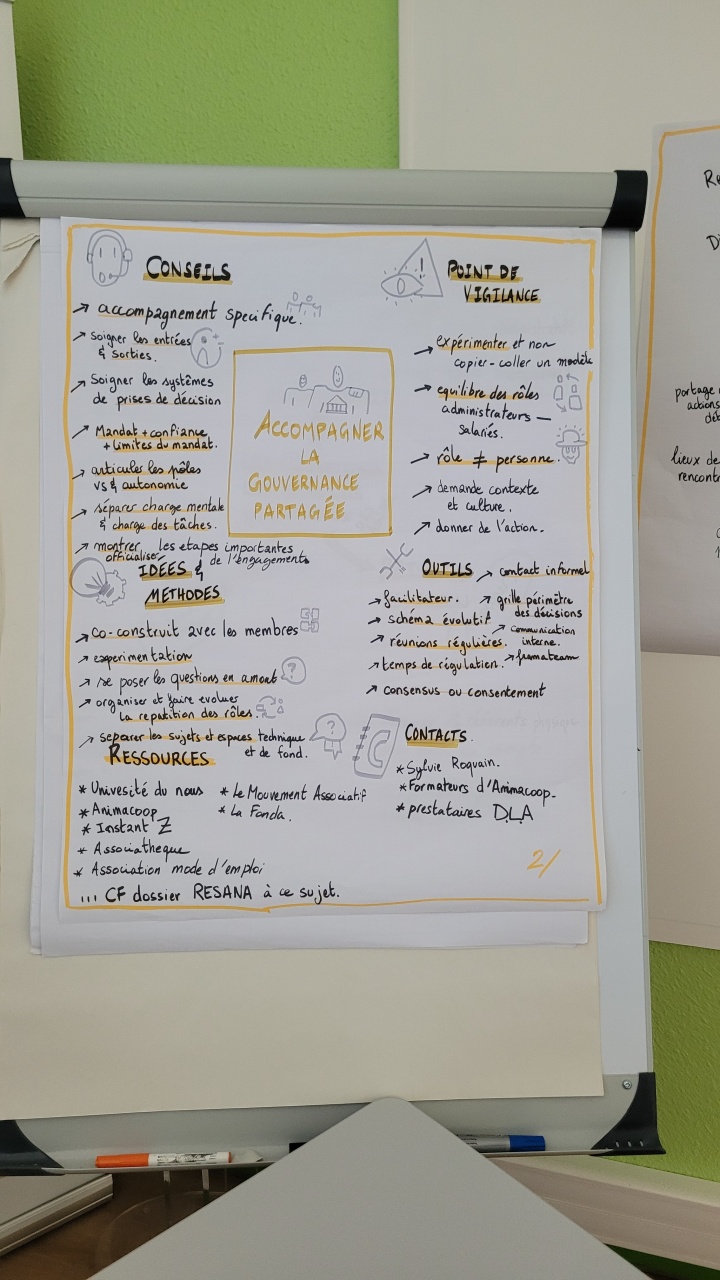 CONSEILS
→ accompagnement specifique.
→ Soigner les entrées
& sorties.
→ Soigner les systèmes
de prises de décision
→ Mandat + confiance
+ Limites du mandat.
→ articuler les pôles
VS & autonomie
→ séparer charge mentale
& charge des tâches.
→ montrer les etapes importantes
officialiser de l'engagements
ACCOMPAGNER
LA
GOUVERNANCE
PARTAGÉE
POINT DE
VIGILANCE
→ expérimenter et non
copier-coller un modèle
→ equilibre des rôles
administrateurs —
salariés.
→ rôle ≠ personne.
→ demande contexte
et culture.
→ donner de l'action.
IDÉES &
METHODES
→ co-construit avec les membres
→ experimentation
→ se poser les questions en amont
→ organiser et faire evoluer
la repatition des rôles.
→ separer les sujets et espaces technique
et de fond.
OUTILS
→ contact informel
→ facilitateur.
→ grille périmètre
des décisions
→ schéma évolutif
→ communication
interne.
→ réunions régulières.
→ framateam
→ temps de régulation.
→ consensus ou consentement
RESSOURCES
* Univesité du nous
* Animacoop
* Instant Z
* Associatheque
* Association mode d'emploi
* Le Mouvement Associatif
* La Fonda.
... CF dossier RESANA à ce sujet.
CONTACTS
* Sylvie Roquain.
* Formateurs d'Animacoop.
* prestataires DLA
2/
partage
actions
lieux de
rencont